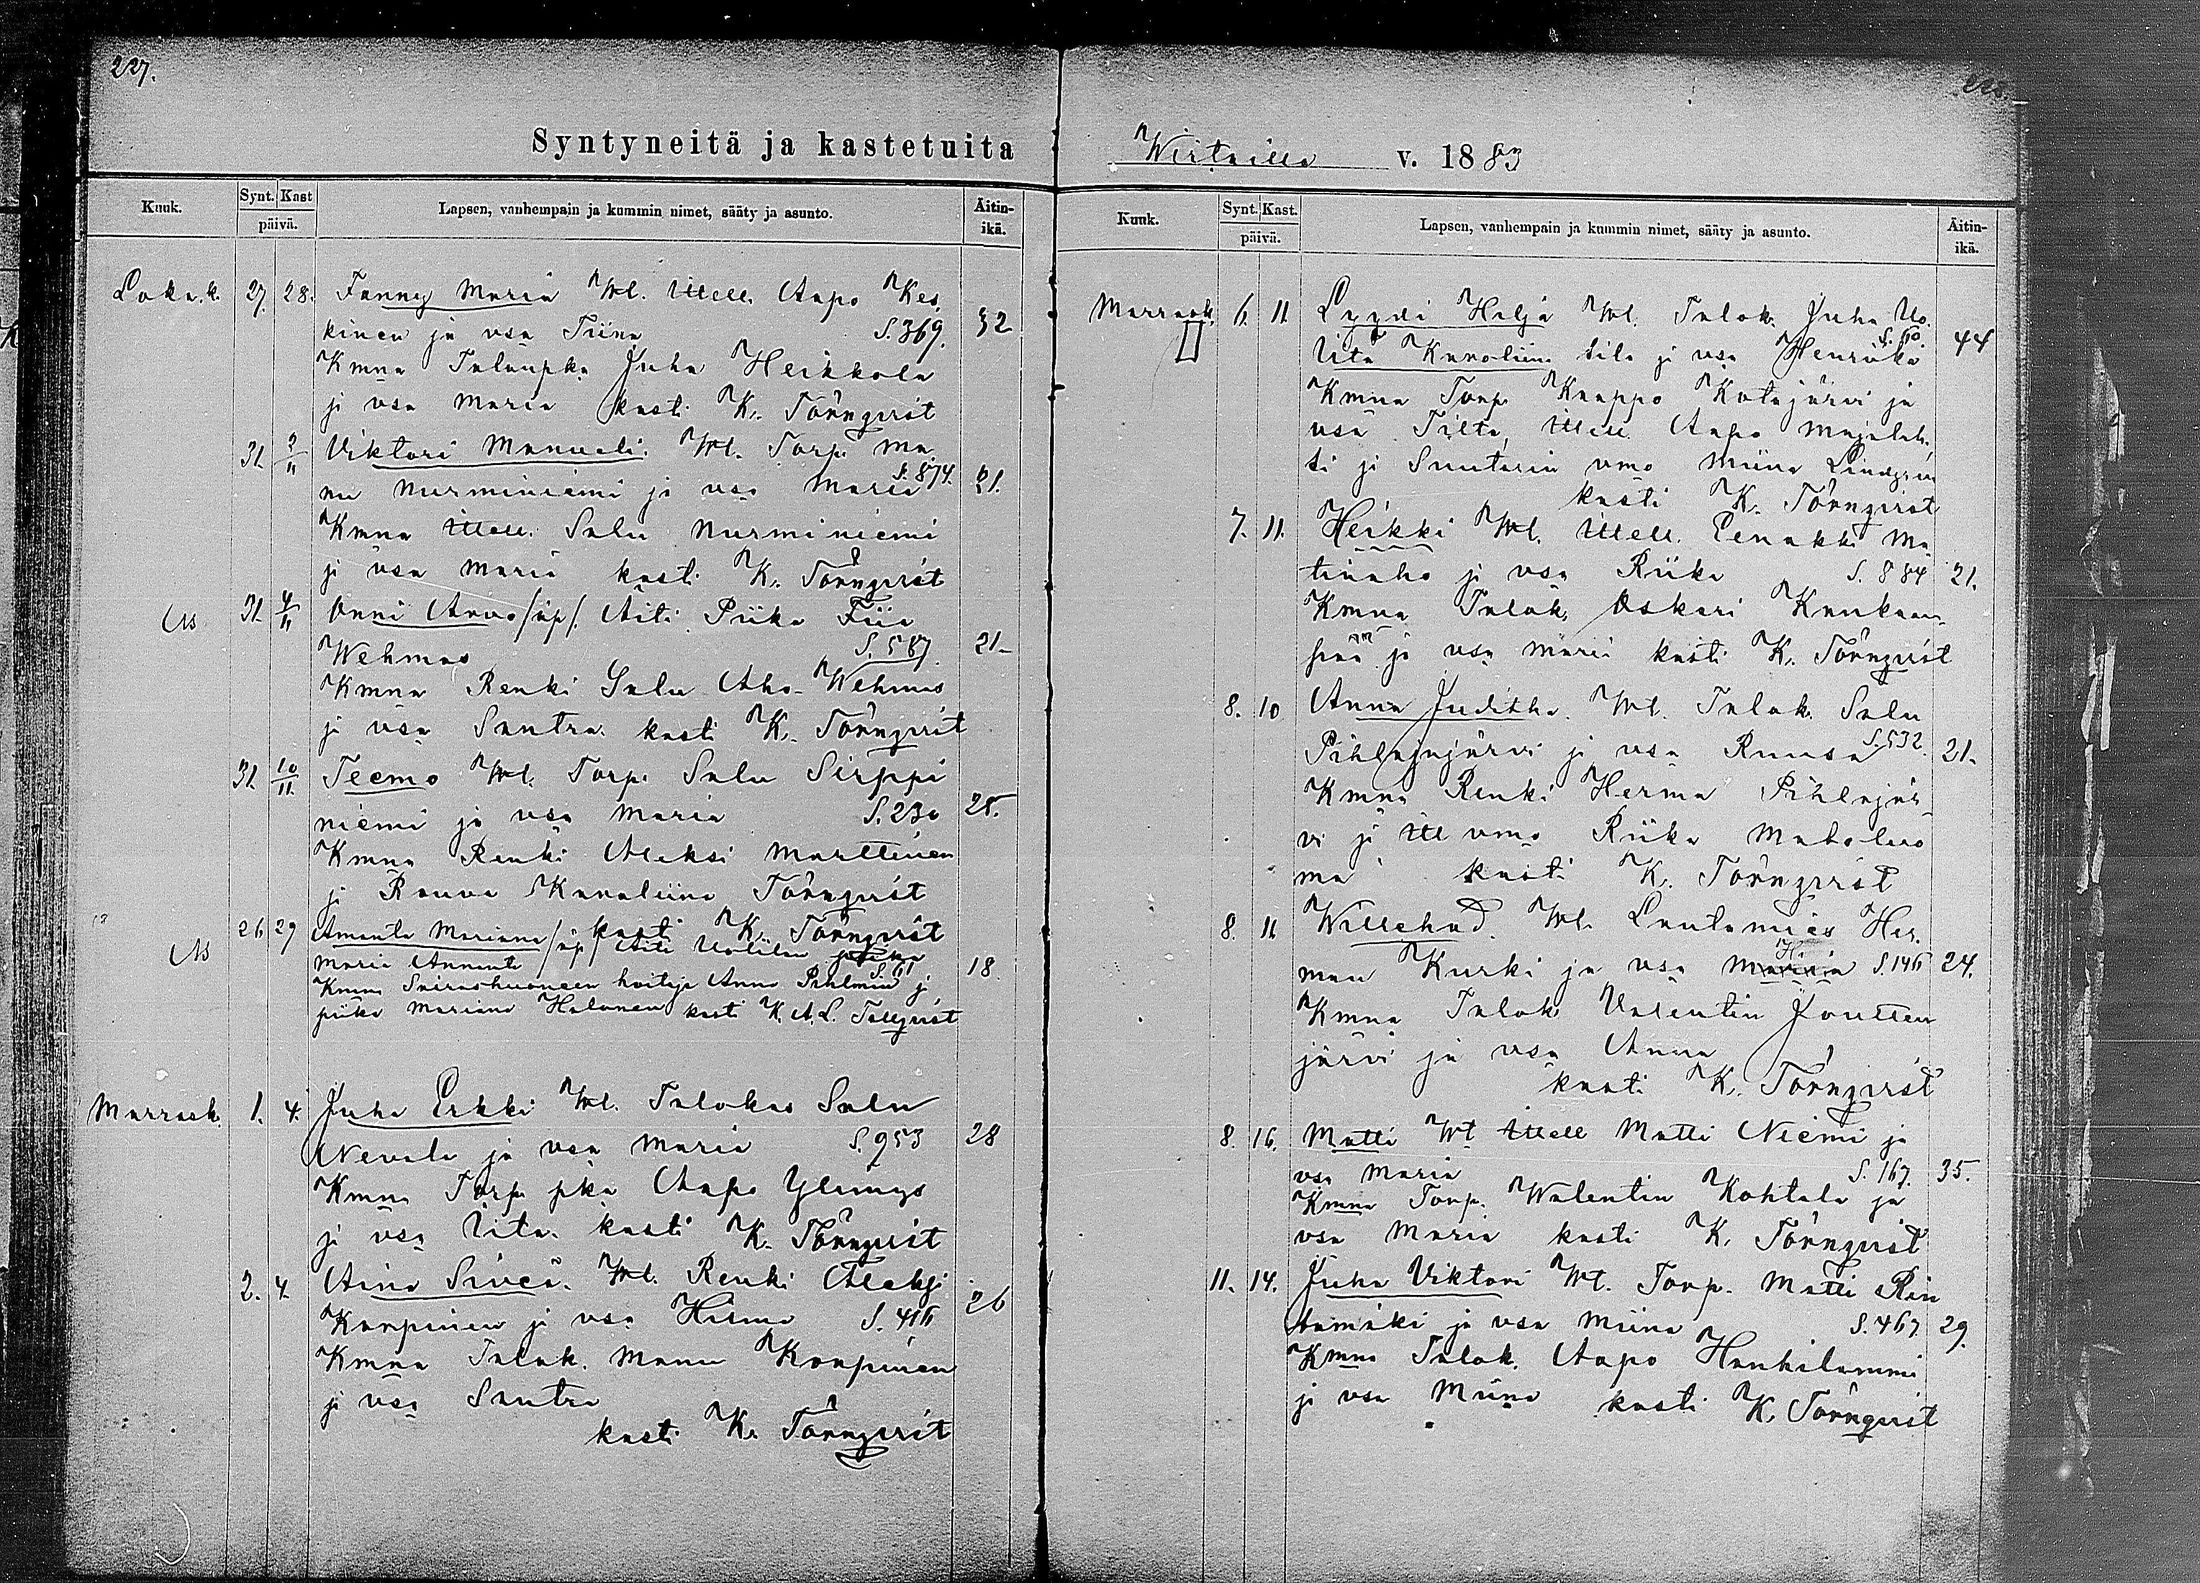 227.
Syntyneitä ja kastetuita
Kuuk. Synt. Kast päivä. Lapsen, vanhempain ja kummin nimet, sääty ja asunto. Äitin-ikä.
Lokak. 27. 28. Fanny Maria Wl. Itsell. Aapo Kes
kinen ja vsa Tiina S. 369. 32
Kmna Talonpka Juha Heikkola
ja vsa Maria kasti K. Törnqvist
31. 3/11 Viktori Manueli. Wl. Torp. Ma
nu Nurminiemi ja vsa Maria S. 874. 21.
Kmna Itsell. Salu Nurminiemi
ja vsa Maria kasti K. Törnqvist
Ab 31. 4/11 Onni Arvo /äp/. Äiti Piika Fiia
Wehmas S. 587 21.
Kmna Renki Salu Aho-Wehmas
ja vsa Santra kasti K. Törnqvist
31. 10/11. Teemo Wl. Torp. Salu Sirppi
niemi ja vsa Maria S. 230 25.
Kmna Renki Aleksi Marttinen
ja Rouva Karoliina Törnqvist
kasti K. Törnqvist
Ab 26 29 Amanta Mariana /äp/ Äiti
Maria Amanta S. 61 18.
Kmna Sairashuoneen hoitaja Anna Pihlman ja
piika Mariana Halonen kasti K. A. L. Tallqvist
Marrask. 1. 4. Juho Erkki Wl. Talokas Salu
Nevala ja vsa Maria S. 953 28
Kmna Torp. pka Aapo Ylimys
ja vsa Vita kasti K. Törnqvist
2. 4. Aino Siveä. Wl. Renki Aleksi
Karpinen ja vsa Hilma S. 416 26
Kmna Talok. Manu Karpinen
ja vsa Santra
kasti K. Törnqvist
Wirtailla v. 1883
Kuuk. Synt. Kast. päivä. Lapsen, vanhempain ja kummin nimet, sääty ja asunto. Äitin-ikä.
Marrask. 6. 11. Lyydi Hilja Wl. Talok. Juha Uo.
Vita Karoliina tila ja vsa Henrika 44
Kmna Torp. Kaappo Katajärvi ja
vsa Tilta, Itsell. Aapo Majalah
ti ja Suutarin vmo Miina Lindgren
kasti K. Törnqvist
7. 11. Heikki Wl. Itsell. Eenokki Ma
tinaho ja vsa Riika S. 884 21.
Kmna Talok. Oskari Kaukaan
pää ja vsa Maria kasti K. Törnqvist
8. 10 Anna Juditha. Wl. Talok. Salu
Pihlajajärvi ja vsa Ruusa S. 532. 21.
Kmna Renki Herma Pihlajär
vi ja Itsell vmo Riika Maholuo
ma kasti K. Törnqvist
8. 11. Willehad. Wl. Lautamies Her
man Kurki ja vsa S. 146 24.
Kmna Talok Valentin Joutten
järvi ja vsa Anna
kasti K. Törnqvist
8. 16. Matti Wl Itsell Matti Niemi ja
vsa Maria S. 167. 35.
Kmna Torp. Walentin Kohtala ja
vsa Maria kasti K. Törnqvist
11. 14. Juha Viktori Wl. Torp. Matti Rin
tamäki ja vsa Miina S. 467 29.
Kmna Talok. Aapo Hauhilammi
ja vsa Miina kasti K. Törnqvist